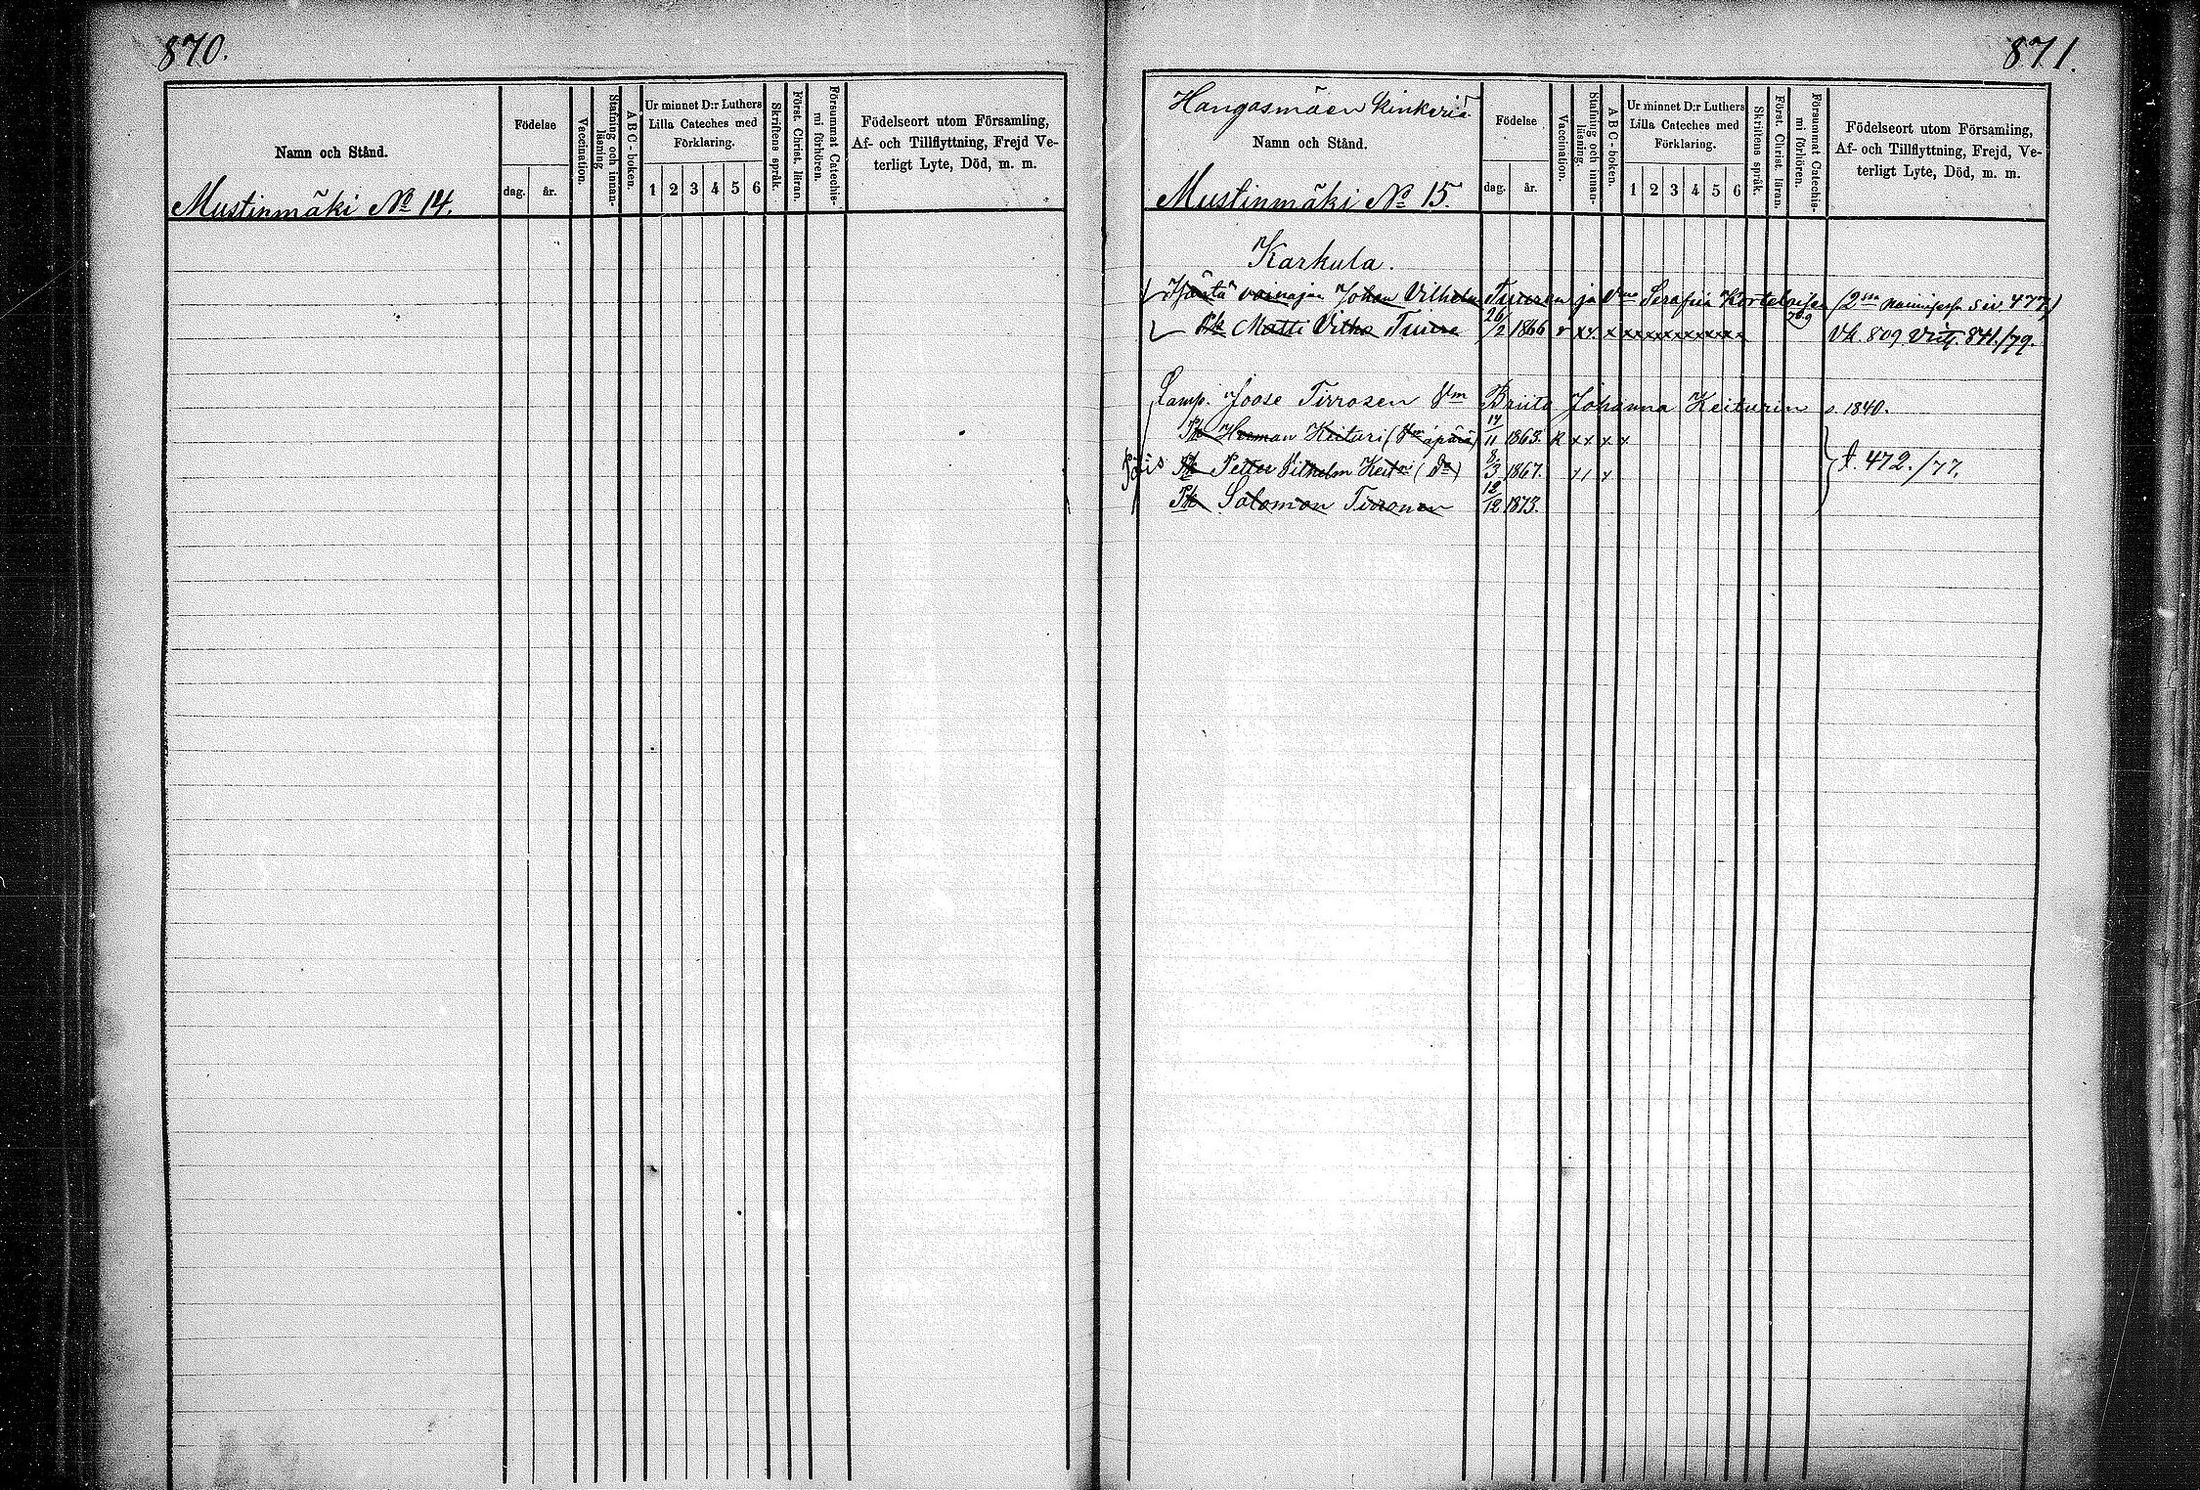 870.
Namn och Stånd.
Mustinmäki No 14.
Födelse
dag.
år.
Vaccination.
Stafning och innan-
läsning
ABC-boken.
Ur minnet D:r Luthers
Lilla Cateches med
Förklaring.
1 2 3 4 5 6
Skriftens språk.
Först. Christ. läran.
Försummat Catechis-
mi förhören.
Födelseort utom Församling,
Af- och Tillflyttning, Frejd Ve-
terligt Lyte, Död, m. m.
871.
Hangasmäen kinkeriä
Namn och Stånd.
Mustinmäki No 15.
Födelse
dag.
år.
Vaccination.
Stafning och innan-
läsning.
ABC-boken.
Ur minnet D:r Luthers
Lilla Cateches med
Förklaring.
1 2 3 4 5 6
Skriftens språk.
Först. Christ. läran.
Försummat Catechis-
mi förhören.
Födelseort utom Församling,
Af- och Tillflyttning, Frejd, Ve-
terligt Lyte, Död, m. m.
Karkula.
vainajan Johan Vilhelm Tiuisen ja Serafiia (2 siv. 477)
Pk Matti Tiuire 26/2 1866 v x x. x x x x x x x x x x x Vk. 809 841./79.
Lamp. Joose Tirrosen Vm Briita Johanna Keiturin s. 1840.
Pk Herman Keituri (Vm äpärä) 17/11 1863. R x x x x
pois Pk Petter Vilhelm (Do) 8/3 1867. x 472./77.
Pk Salomon Tirronen 12/12 1873.